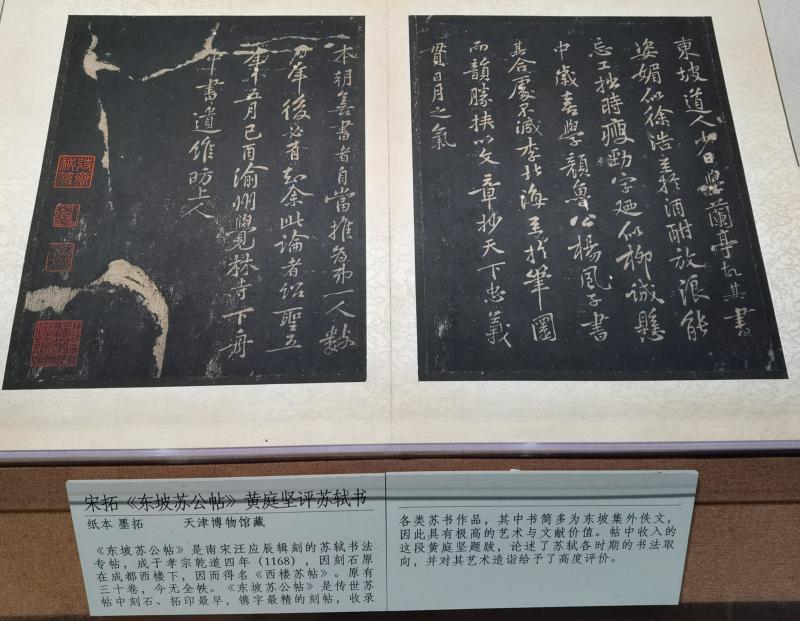 東坡道人少日學蘭亭故其書
姿媚似徐浩至於酒酣放浪能
忘工拙時瘦勁字迺似柳誠懸
中歲喜學顏魯公楊風子書
其合處不減李北海至於筆圜
而韻勝挾以文章妙天下忠義
貫日月之氣
本朝善書者自當推為第一人數
百年後必有知余此論者紹聖五
年五月己酉渝州覺林寺下舟
中書道維昉上人
宋拓《东坡苏公帖》黄庭坚评苏轼书
纸本 墨拓 天津博物馆藏
《东坡苏公帖》是南宋汪应辰辑刻的苏轼书法
专帖，成于孝宗乾道四年（1168），因刻石原
在成都西楼下，因而得名《西楼苏帖》。原有
三十卷，今无全帙。《东坡苏公帖》是传世苏
帖中刻石、拓印最早，镌字最精的刻帖，收录
各类苏书作品，其中书简多为东坡集外佚文，
因此具有极高的艺术与文献价值。帖中收入的
这段黄庭坚题跋，论述了苏轼各时期的书法取
向，并对其艺术造诣给予了高度评价。